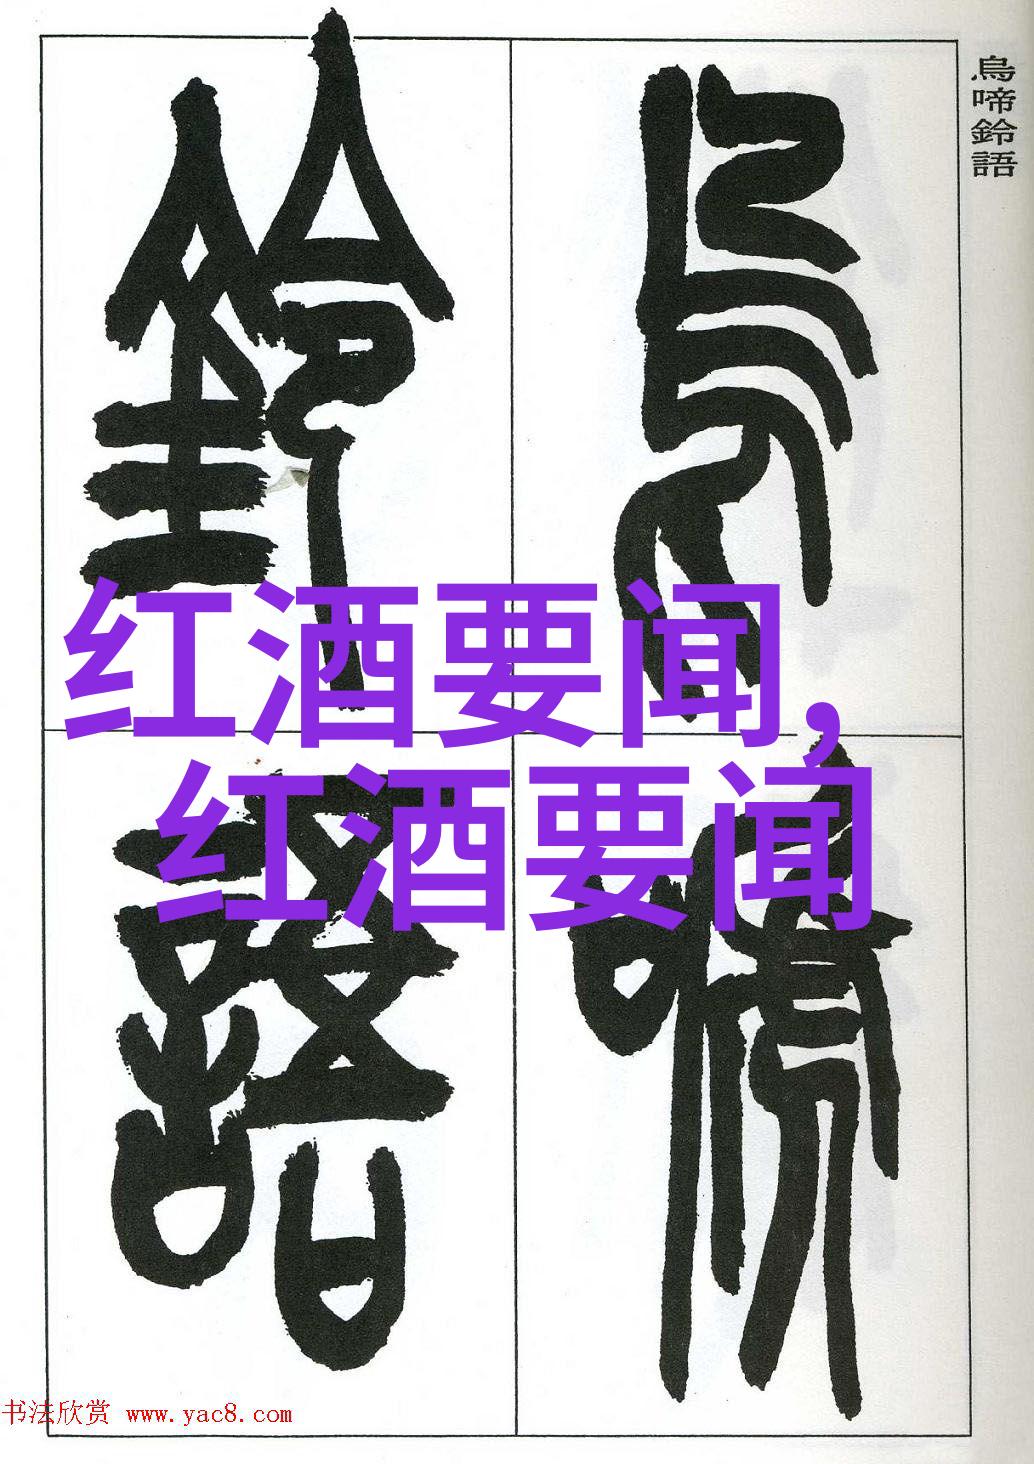 烏啼鈴語
烏啼
鈴語
红酒要闻,
红酒要闻
书法欣赏 www.yac8.com